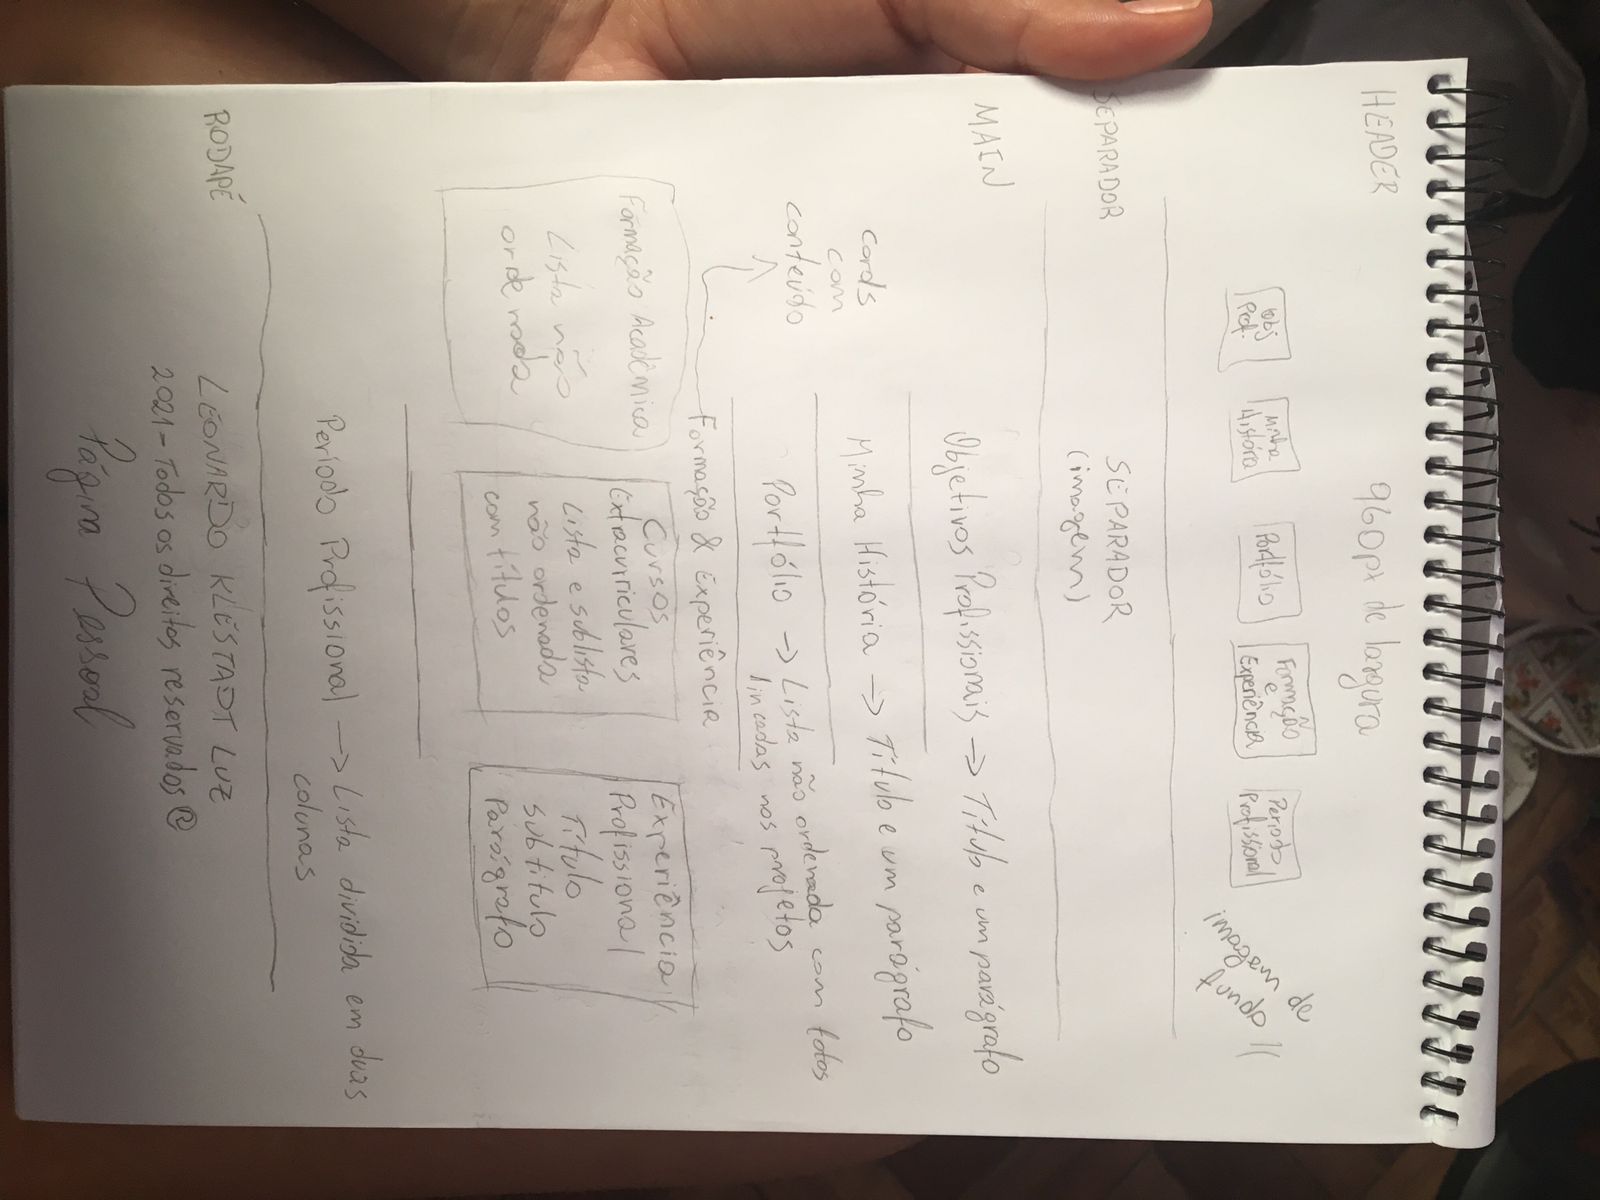 HEADER
960px de largura
Obj
Prof.
Minha
História
Portfólio
Formação
e
Experiência
Período
Profissional
imagem de
fundo
SEPARADOR
SEPARADOR
(imagem)
MAIN
Objetivos Profissionais → Título e um parágrafo
Minha História → Título e um parágrafo
cards
com
conteúdo
Portfólio → Lista não ordenada com fotos
lincadas nos projetos
Formação & Experiência
Formação Acadêmica
Lista não
ordenada
Cursos
Extracurriculares
Lista e sublista
não ordenada
com títulos
Experiência
Profissional
Título
subtitulo
Parágrafo
Período Profissional → Lista dividida em duas
colunas
RODAPÉ
LEONARDO KLESTADT LUZ
2021 - Todos os direitos reservados ®
Página Pessoal